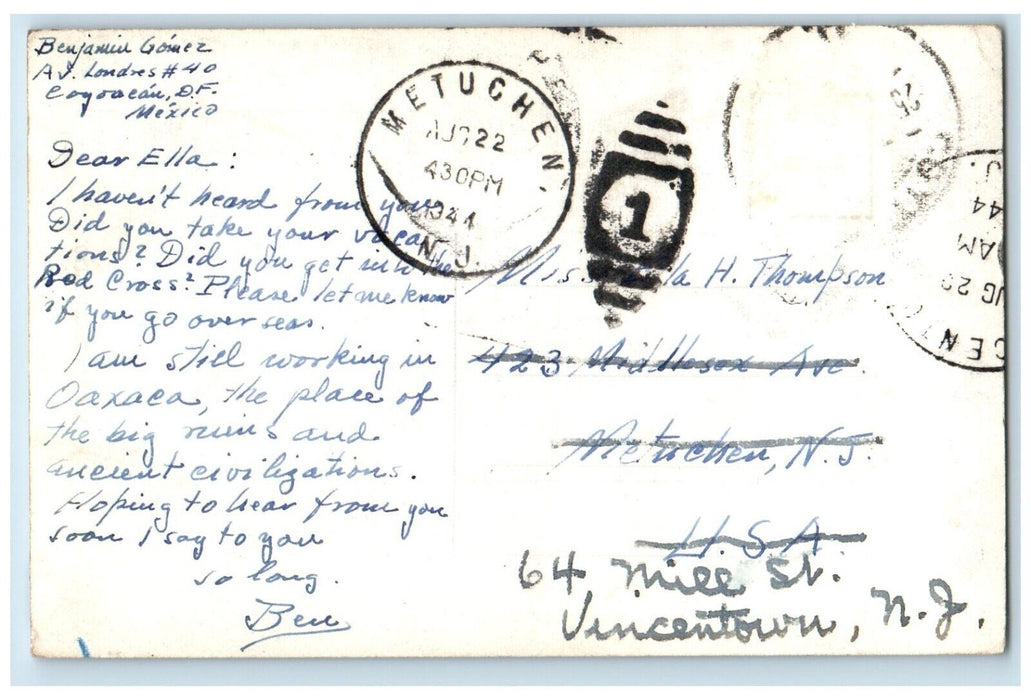 Benjamin Gómez
Av. Londres #40
Coyoacán, D.F.
México
Dear Ella:
I haven't heard from you.
Did you take your vaca
tions? Did you get into the
Red Cross? Please let me know
if you go over seas.
I am still working in
Oaxaca, the place of
the big ruins and
ancient civilizations.
Hoping to hear from you
soon I say to you
so long.
Ben
METUCHEN.
AUG 22
430PM
1944
N.J.
1
Miss Ella H. Thompson
423 Middlesex Ave.
Metuchen, N.J.
U.S.A.
64 Mill St.
Vincentown, N.J.
CENTO
UG 23
AM
44
J.